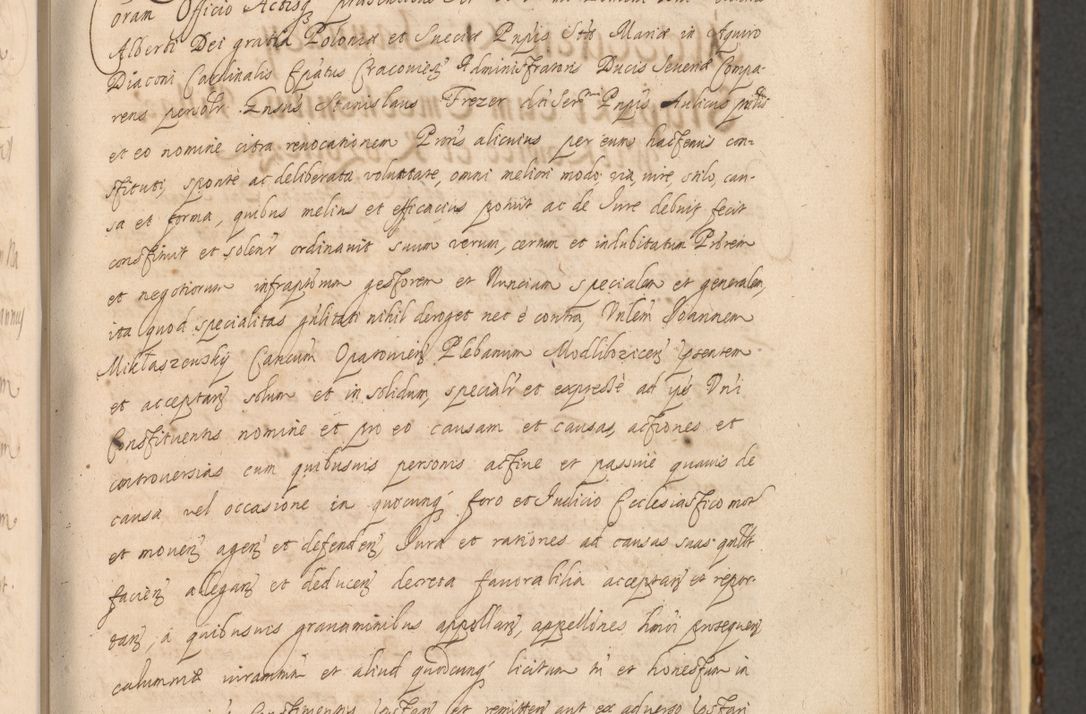 oram Officio Actisq
Alberti Dei gratia Poloniæ et Sueciæ Pnpis Stæ Mariæ in Aquiro
Diaconi Cardinalis Epatus Cracovien Administratoris Ducis Severiæ Compa-
rens personlr Ensus Stanislaus Frezer dci Ser Pnpis Aulicus
et eo nomine citra revocationem Proris alicuius per eum hactenus con-
stituti, sponte ac deliberata voluntate, omni meliori modo via, iure, stilo, cau-
sa et forma, quibus melius et efficacius potuit ac de Iure debuit fecit
constituit et solenr ordinavit suum verum, certum et indubitatum Prorem
et negotiorum infraptorum gestorem et Nuncium specialem et generalem,
ita quod specialitas gnlitati nihil deroget nec è contra, Vnlem Joannem
Miklaszewsky Cancum Opatovien Plebanum Modliboricen
et acceptan solum et in solidum, specialr et expresse ad
Constituentis nomine et pro eo causam et causas, actiones et
controversias cum quibusuis personis active et passive quavis de
causa vel occasione in quocunq foro et Iudicio Ecclesiastico mot
et moven agen et defenden, Iura et rationes ad causas suas
facien allegan et deducen decreta favorabilia acceptan et repor-
tan, à quibusuis gravaminibus appellan, appellones prosequen
calumniæ iuramtum et aliud quodcunq licitum et honestum in
Constituentis et remitten aut ex adverso